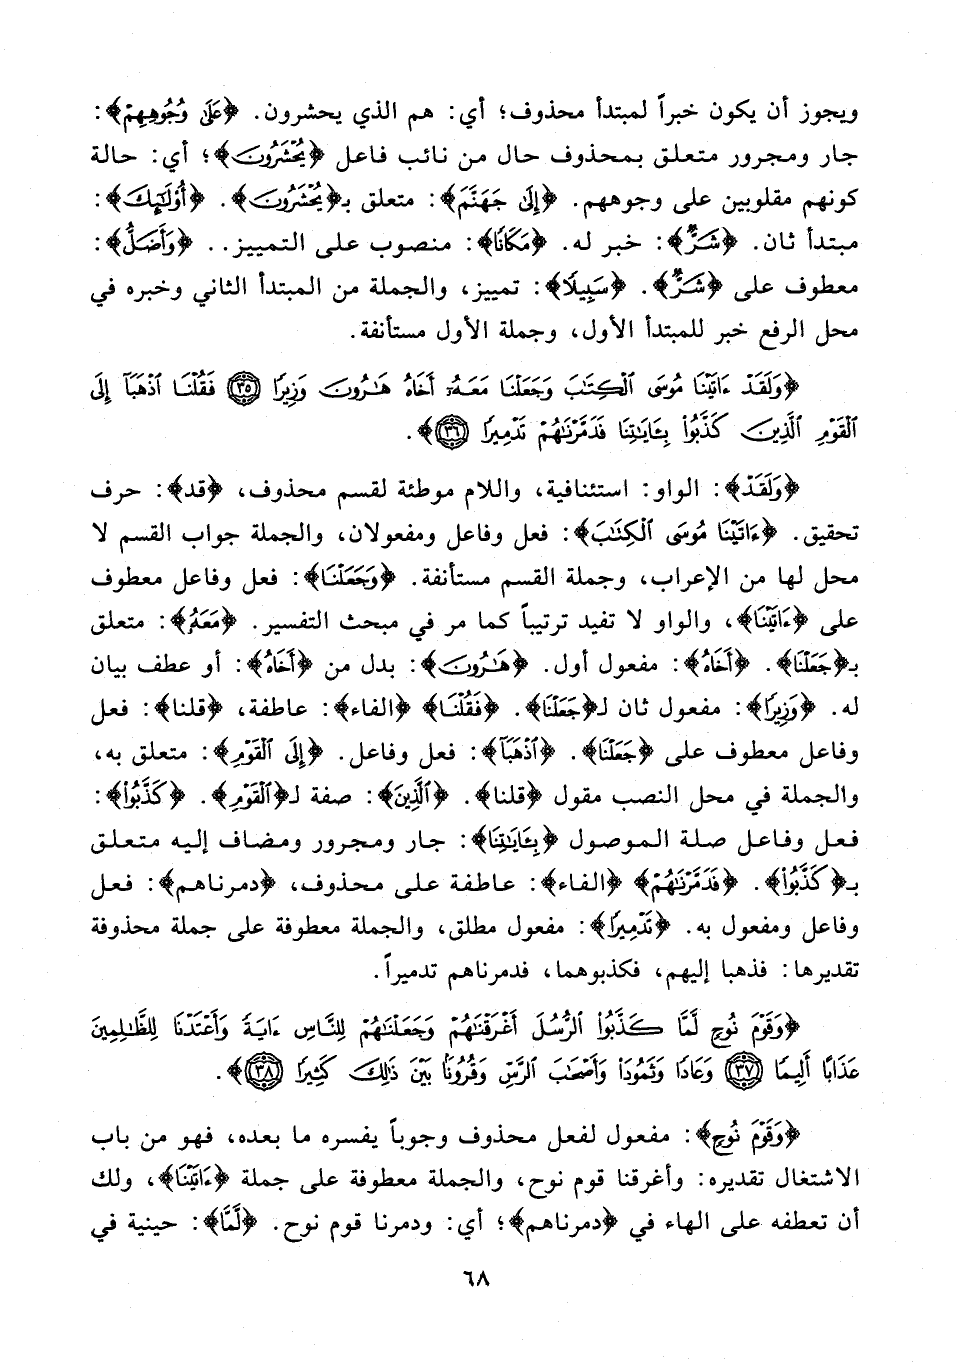 ويجوز أن يكون خبراً لمبتدأ محذوف؛ أي: هم الذي يحشرون. ﴿عَلَىٰ وُجُوهِهِمْ﴾:
جار ومجرور متعلق بمحذوف حال من نائب فاعل ﴿يُحْشَرُونَ﴾؛ أي: حالة
كونهم مقلوبين على وجوههم. ﴿إِلَىٰ جَهَنَّمَ﴾: متعلق بـ﴿يُحْشَرُونَ﴾. ﴿أُوْلَٰٓئِكَ﴾:
مبتدأ ثان. ﴿شَرٌّ﴾: خبر له. ﴿مَكَانًا﴾: منصوب على التمييز.. ﴿وَأَضَلُّ﴾:
معطوف على ﴿شَرٌّ﴾. ﴿سَبِيلًا﴾: تمييز، والجملة من المبتدأ الثاني وخبره في
محل الرفع خبر للمبتدأ الأول، وجملة الأول مستأنفة.
﴿وَلَقَدْ ءَاتَيْنَا مُوسَى ٱلْكِتَٰبَ وَجَعَلْنَا مَعَهُۥٓ أَخَاهُ هَٰرُونَ وَزِيرًا ٣٥ فَقُلْنَا ٱذْهَبَآ إِلَى
ٱلْقَوْمِ ٱلَّذِينَ كَذَّبُوا۟ بِـَٔايَٰتِنَا فَدَمَّرْنَٰهُمْ تَدْمِيرًا ٣٦﴾.
﴿وَلَقَدْ﴾: الواو: استئنافية، واللام موطئة لقسم محذوف، ﴿قد﴾: حرف
تحقيق. ﴿ءَاتَيْنَا مُوسَى ٱلْكِتَٰبَ﴾: فعل وفاعل ومفعولان، والجملة جواب القسم لا
محل لها من الإعراب، وجملة القسم مستأنفة. ﴿وَجَعَلْنَا﴾: فعل وفاعل معطوف
على ﴿ءَاتَيْنَا﴾، والواو لا تفيد ترتيباً كما مر في مبحث التفسير. ﴿مَعَهُ﴾: متعلق
بـ﴿جَعَلْنَا﴾. ﴿أَخَاهُ﴾: مفعول أول. ﴿هَٰرُونَ﴾: بدل من ﴿أَخَاهُ﴾: أو عطف بيان
له. ﴿وَزِيرًا﴾: مفعول ثان لـ﴿جَعَلْنَا﴾. ﴿فَقُلْنَا﴾ ﴿الفاء﴾: عاطفة، ﴿قلنا﴾: فعل
وفاعل معطوف على ﴿جَعَلْنَا﴾. ﴿ٱذْهَبَآ﴾: فعل وفاعل. ﴿إِلَى ٱلْقَوْمِ﴾: متعلق به،
والجملة في محل النصب مقول ﴿قلنا﴾. ﴿ٱلَّذِينَ﴾: صفة لـ﴿ٱلْقَوْمِ﴾. ﴿كَذَّبُوا۟﴾:
فعل وفاعل صلة الموصول ﴿بِـَٔايَٰتِنَا﴾: جار ومجرور ومضاف إليه متعلق
بـ﴿كَذَّبُوا۟﴾. ﴿فَدَمَّرْنَٰهُمْ﴾ ﴿الفاء﴾: عاطفة على محذوف، ﴿دمرناهم﴾: فعل
وفاعل ومفعول به. ﴿تَدْمِيرًا﴾: مفعول مطلق، والجملة معطوفة على جملة محذوفة
تقديرها: فذهبا إليهم، فكذبوهما، فدمرناهم تدميراً.
﴿وَقَوْمَ نُوحٍ لَّمَّا كَذَّبُوا۟ ٱلرُّسُلَ أَغْرَقْنَٰهُمْ وَجَعَلْنَٰهُمْ لِلنَّاسِ ءَايَةً وَأَعْتَدْنَا لِلظَّٰلِمِينَ
عَذَابًا أَلِيمًا ٣٧ وَعَادًا وَثَمُودَا۟ وَأَصْحَٰبَ ٱلرَّسِّ وَقُرُونًۢا بَيْنَ ذَٰلِكَ كَثِيرًا ٣٨﴾.
﴿وَقَوْمَ نُوحٍ﴾: مفعول لفعل محذوف وجوباً يفسره ما بعده، فهو من باب
الاشتغال تقديره: وأغرقنا قوم نوح، والجملة معطوفة على جملة ﴿ءَاتَيْنَا﴾، ولك
أن تعطفه على الهاء في ﴿دمرناهم﴾؛ أي: ودمرنا قوم نوح. ﴿لَّمَّا﴾: حينية في
٦٨